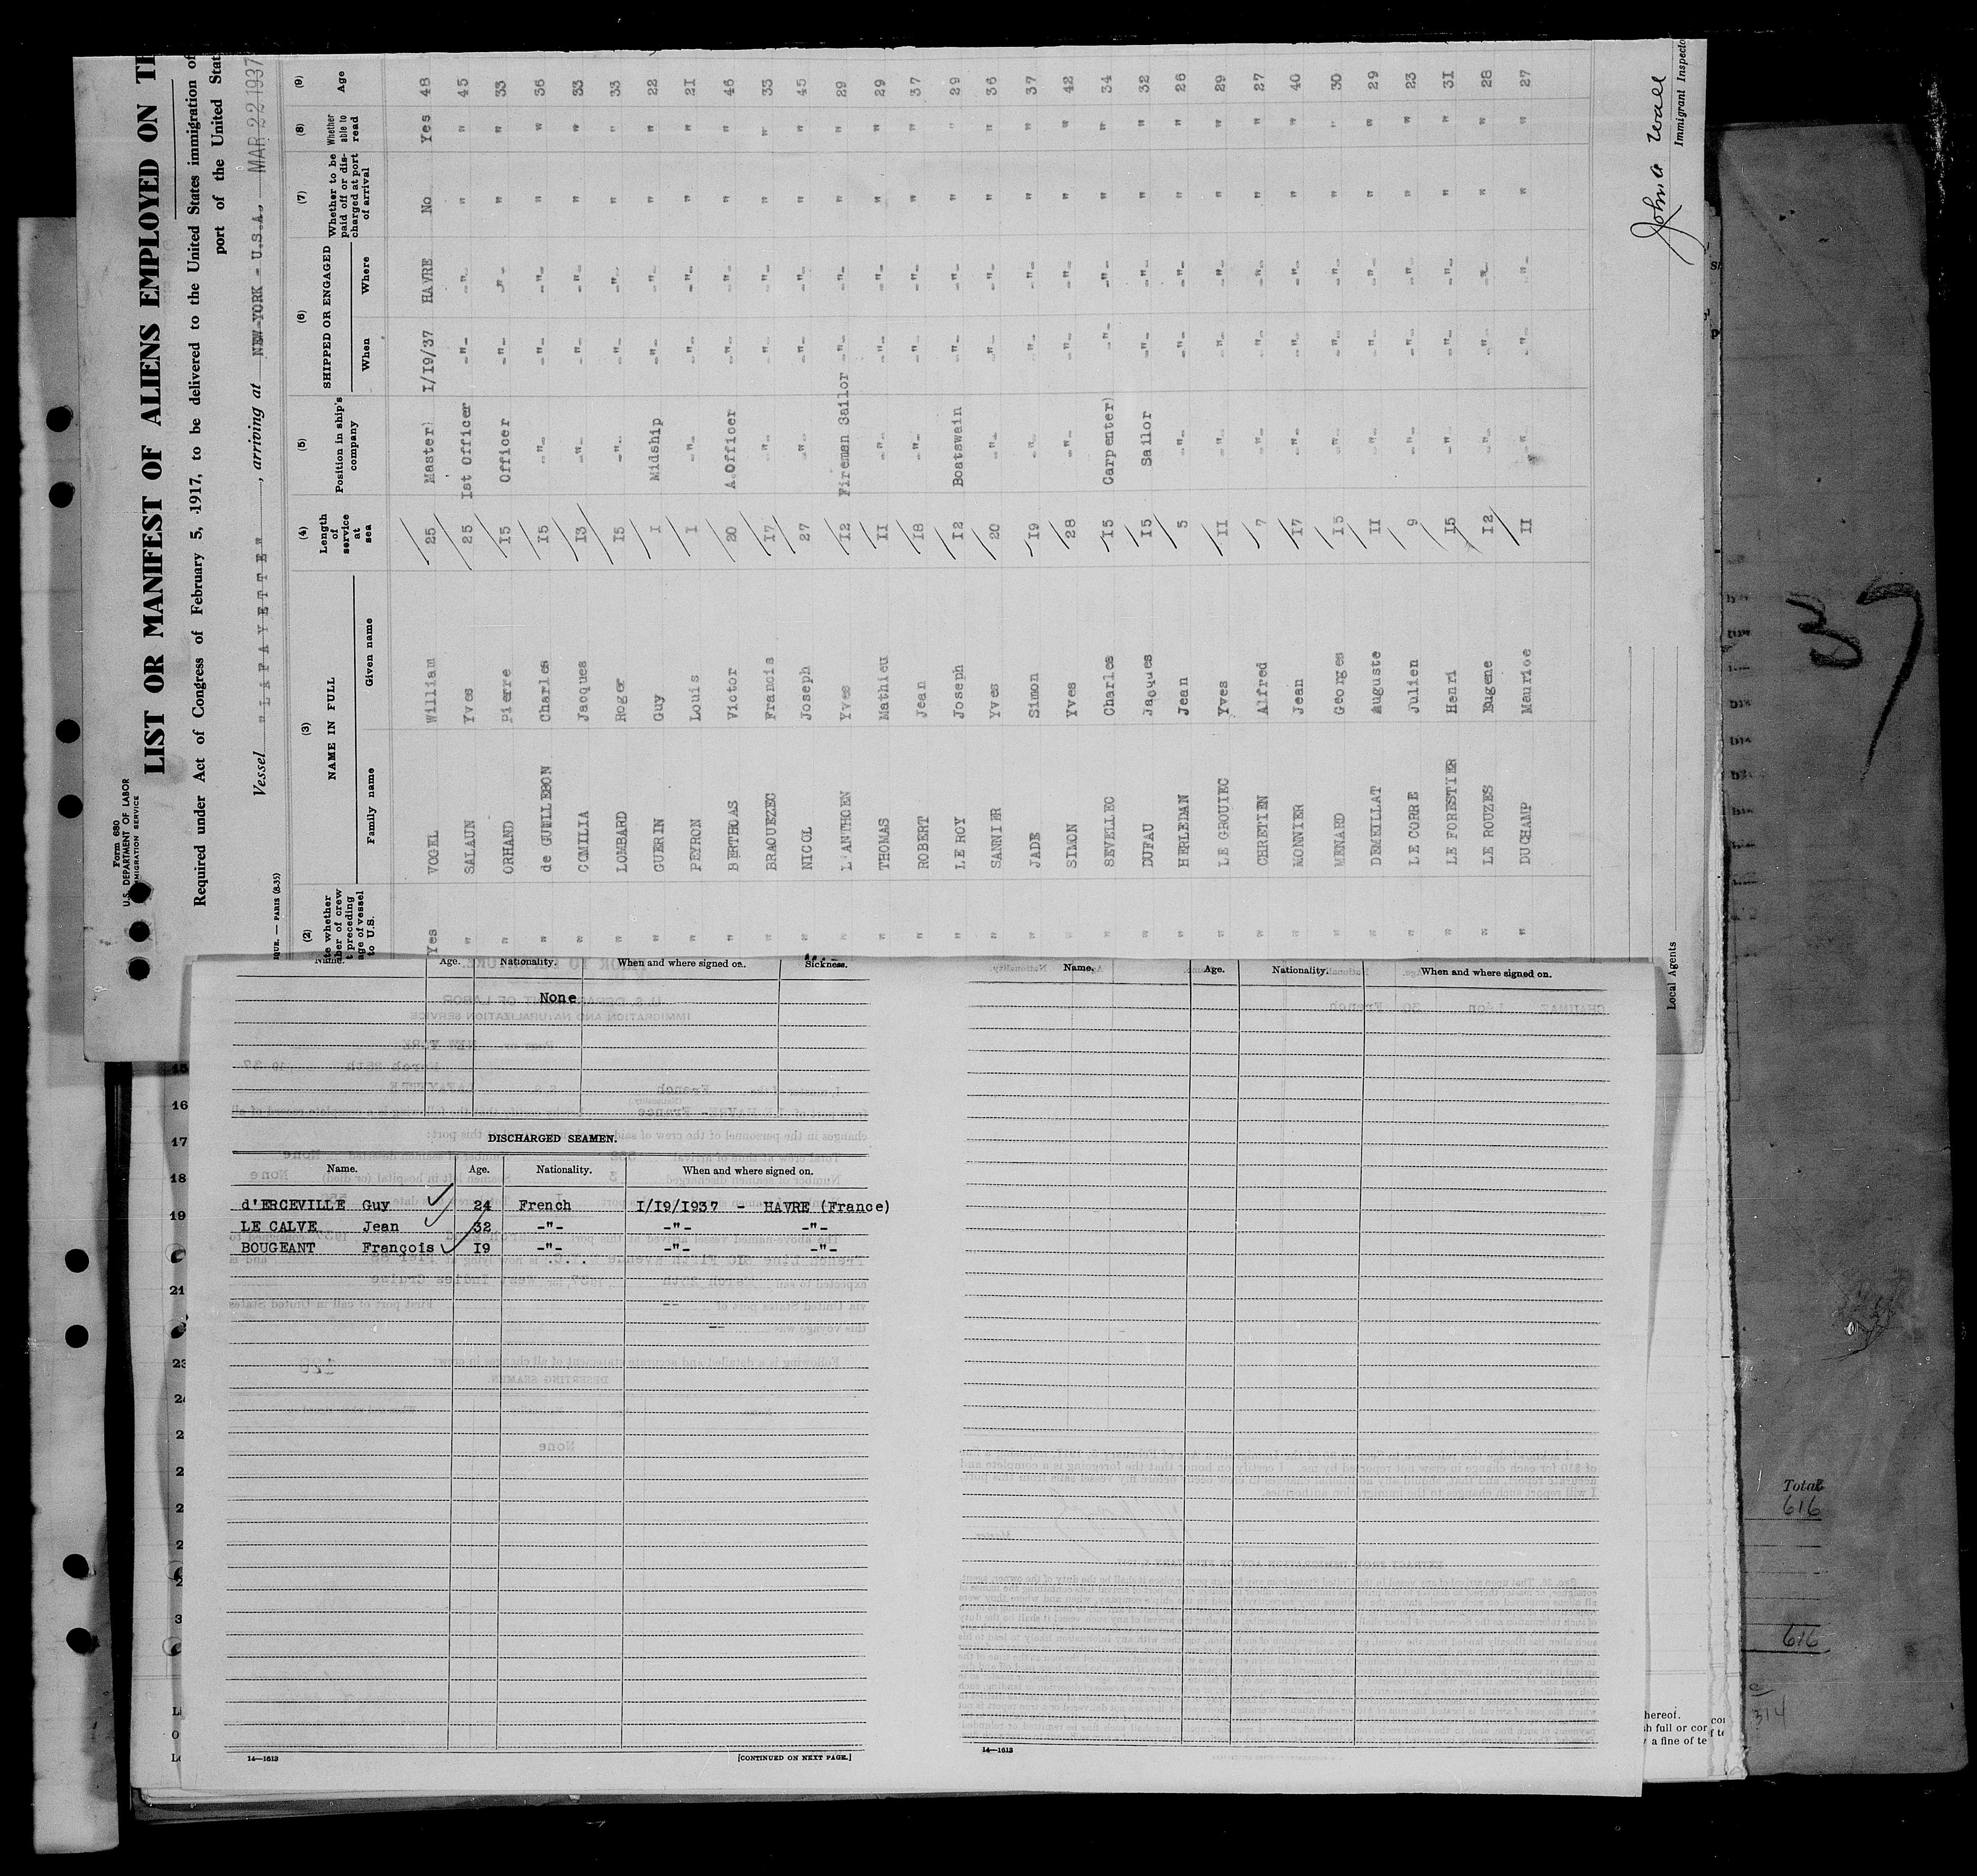 Form 680
U.S. DEPARTMENT OF LABOR
IMMIGRATION SERVICE
LIST OR MANIFEST OF ALIENS EMPLOYED ON
Required under Act of Congress of February 5, 1917, to be delivered to the United States immigration
port of the United
Vessel "LAFAYETTE", arriving at NEW-YORK - U.S.A., MAR 22 1937
PARIS (8-35)
(2) (3) (4) (5) (6) (7) (8) (9)
NAME IN FULL
Family name Given name
Length of service at sea
Position in ship's company
SHIPPED OR ENGAGED
When Where
Whether to be paid off or discharged at port of arrival
Whether able to read
Age
Yes VOGEL William 25 Master I/I9/37 HAVRE No Yes 48
" SALAUN Yves 25 Ist Officer -"- -"- " " 45
" ORHAND Pierre I5 Officer -"- -"- " " 33
" de GUILLEBON Charles I5 -"- -"- -"- " " 36
" COMILIA Jacques I3 -"- -"- -"- " " 33
" LOMBARD Roger I5 -"- -"- -"- " " 33
" GUERIN Guy I Midship -"- -"- " " 22
" PEYRON Louis I -"- -"- -"- " " 2I
" BERTHOAS Victor 20 A.Officer -"- -"- " " 46
" BRAOUEZEC Francis I7 -"- -"- -"- " " 35
" NICOL Joseph 27 -"- -"- -"- " " 45
" L'ANTHOEN Yves I2 Fireman Sailor -"- -"- " " 29
" THOMAS Mathieu II -"- -"- -"- " " 29
" ROBERT Jean I8 -"- -"- -"- " " 37
" LE ROY Joseph I2 Boatswain -"- -"- " " 29
" SANNIER Yves 20 -"- -"- -"- " " 36
" JADE Simon I9 -"- -"- -"- " " 37
" SIMON Yves 28 -"- -"- -"- " " 42
" SEVELLEC Charles I5 Carpenter -"- -"- " " 34
" DUFAU Jacques I5 Sailor -"- -"- " " 32
" HERLEDAN Jean 5 -"- -"- -"- " " 26
" LE GROUIEC Yves II -"- -"- -"- " " 29
" CHRETIEN Alfred 7 -"- -"- -"- " " 27
" MONNIER Jean I7 -"- -"- -"- " " 40
" MENARD Georges I5 -"- -"- -"- " " 30
" DEMEILLAT Auguste II -"- -"- -"- " " 29
" LE CORRE Julien 9 -"- -"- -"- " " 23
" LE FORESTIER Henri I5 -"- -"- -"- " " 3I
" LE ROUZES Eugene I2 -"- -"- -"- " " 28
" DUCHAMP Maurice II -"- -"- -"- " " 27
Local Agents
John A Wall
Immigrant Inspector
37
Name. Age. Nationality. When and where signed on. Sickness.
None
DISCHARGED SEAMEN.
Name. Age. Nationality. When and where signed on.
d'ERCEVILLE Guy 24 French I/I9/I937 - HAVRE (France)
LE CALVE Jean 32 -"- -"- -"-
BOUGEANT François I9 -"- -"- -"-
14—1613
[CONTINUED ON NEXT PAGE.]
Name. Age. Nationality. When and where signed on.
14—1613
15
16
17
18
19
21
23
Total
616
616
314
hereof.